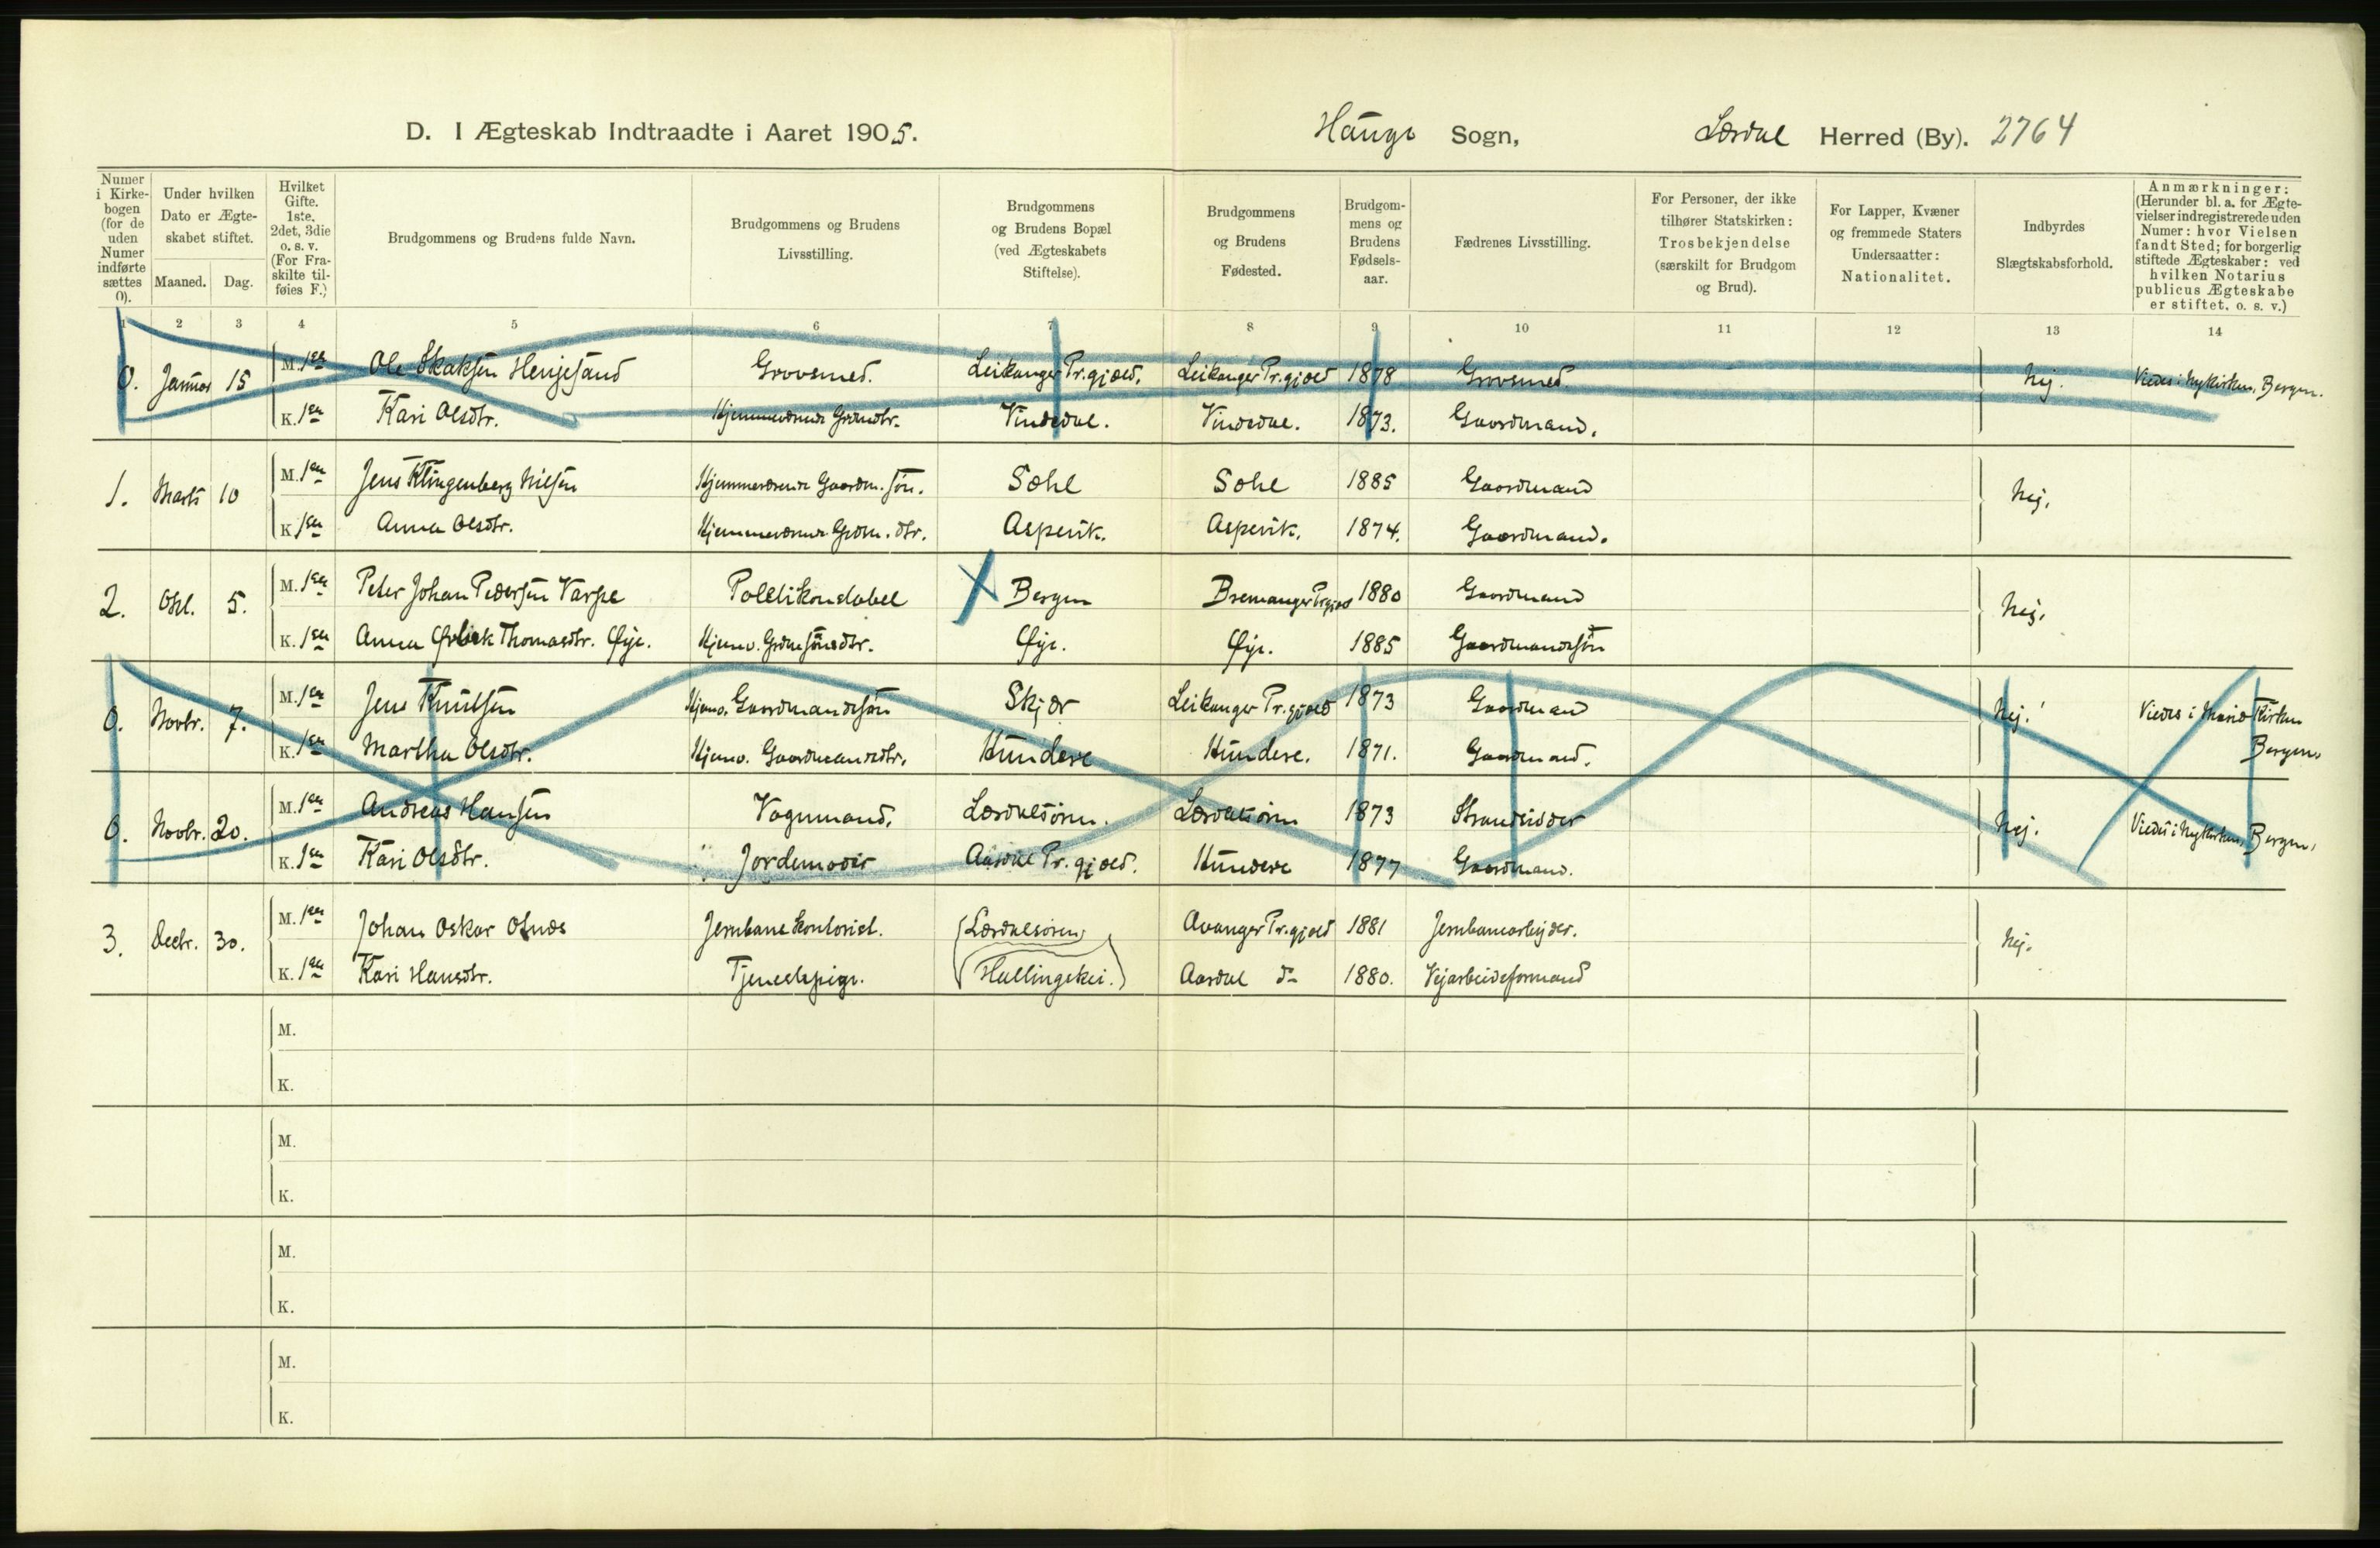 D. I Ægteskab Indtraadte i Aaret 1905. Hauge Sogn, Lærdal Herred (By). 2764
Numer i Kirke-bogen (for de uden Numer indførte sættes 0).
Under hvilken Dato er Ægte-skabet stiftet.
Maaned. Dag.
Hvilket Gifte. 1ste, 2det, 3die o. s. v. (For Fra-skilte til-føies F.)
Brudgommens og Brudens fulde Navn.
Brudgommens og Brudens Livsstilling.
Brudgommens og Brudens Bopæl (ved Ægteskabets Stiftelse).
Brudgommens og Brudens Fødested.
Brudgom-mens og Brudens Fødsels-aar.
Fædrenes Livsstilling.
For Personer, der ikke tilhører Statskirken: Trosbekjendelse (særskilt for Brudgom og Brud).
For Lapper, Kvæner og fremmede Staters Undersaatter: Nationalitet.
Indbyrdes Slægtskabsforhold.
Anmærkninger: (Herunder bl. a. for Ægte-vielser indregistrerede uden Numer: hvor Vielsen fandt Sted; for borgerlig stiftede Ægteskaber: ved hvilken Notarius publicus Ægteskabe er stiftet, o. s. v.)
1 2 3 4 5 6 7 8 9 10 11 12 13 14
0. Januar 15 M. 1ste Ole Skaksen Henjesand Grovsmed. Leikanger Pr.gjæld. Leikanger Pr.gjæld 1878 Grovsmed. Nej. Viedes i Nykirken, Bergen.
K. 1ste Kari Olsdtr. Hjemmeværende Grdmdtr. Vindedal. Vindedal. 1873. Gaardmand.
1. Marts 10 M. 1ste Jens Klingenberg Nilsen Hjemmeværende Gaardm. søn. Sæhl Sæhl 1885 Gaardmand Nej.
K. 1ste Anna Olsdtr. Hjemmeværende Grdm. dtr. Aspevik. Aspevik. 1874. Gaardmand.
2. Okt. 5. M. 1ste Peter Johan Pedersen Varpe Politikonstabel Bergen Bremanger Prgjæld 1880 Gaardmand Nej.
K. 1ste Anna Thomasdtr. Øye. Hjemv. Grdmsønsdtr. Øye. Øye. 1885 Gaardmandssøn
0. Novbr. 7. M. 1ste Jens Knutsen Hjemv. Gaardmandssøn Skjær Leikanger Pr.gjæld 1873 Gaardmand Nej. Viedes i Mariækirken
K. 1ste Martha Olsdtr. Hjemv. Gaardmandsdtr. Hundere Hundere. 1871. Gaardmand. Bergen.
0. Novbr. 20. M. 1ste Andreas Hansen Vognmand. Lærdalsøren. Lærdalsøren 1873 Strandsidder Nej. Viedes i Nykirken, Bergen.
K. 1ste Kari Olsdtr. Jordemoder Aardal Pr.gjæld. Hundere 1877 Gaardmand.
3. Decbr. 30. M. 1ste Johan Oskar Ofnæs Jernbanekontorist. Lærdalsøren Avanger Pr.gjæld 1881 Jernbanearbejder. Nej.
K. 1ste Kari Hansdtr. Tjenestepige. Hallingskei. Aardal do 1880. Vejarbeidsformand
M.
K.
M.
K.
M.
K.
M.
K.